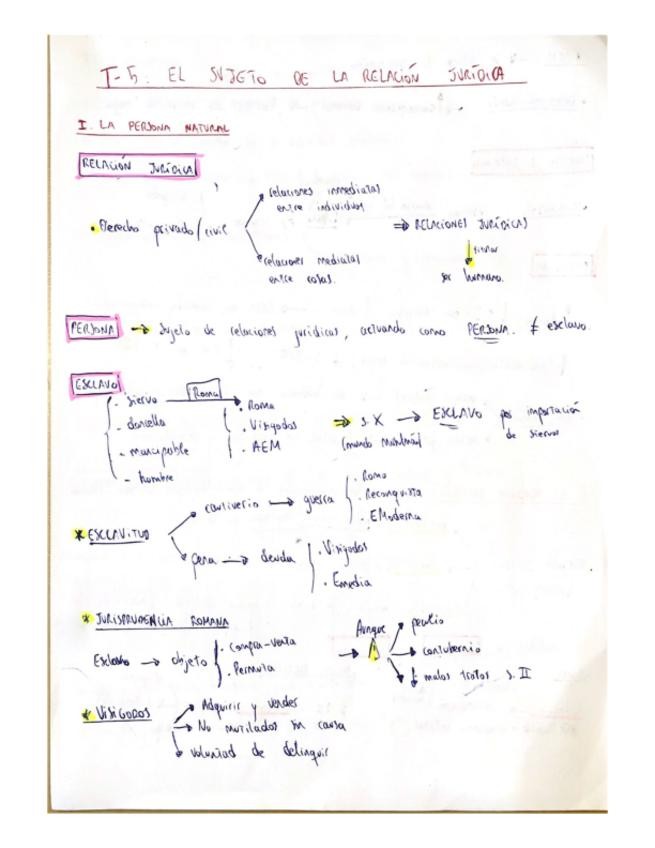 T-5: EL SUJETO DE LA RELACIÓN JURÍDICA
I. LA PERSONA NATURAL
RELACIÓN JURÍDICA
relaciones inmediatas
entre individuos
• Derecho privado/civil
⇒ RELACIONES JURÍDICAS
titular
ser humano.
relaciones mediatas
entre cosas.
PERSONA → Sujeto de relaciones jurídicas, actuando como PERSONA. ≠ esclavo.
ESCLAVO
- siervo
- doncella
- mancipable
- hombre
Roma
• Roma
• Visigodos
• AEM
⇒ s. X → ESCLAVO por importación
(mundo musulmán) de siervos
* ESCLAVITUD
cautiverio → guerra
• Roma
• Reconquista
• EModerna
pena → deuda
• Visigodos
• Emedia
* JURISPRUDENCIA ROMANA
Esclavo → objeto
• Compra-venta
• Permuta
→ Aunque
peculio
contubernio
malos tratos s. II
* VISIGODOS
Adquirir y vender
No mutilados sin causa
voluntad de delinquir